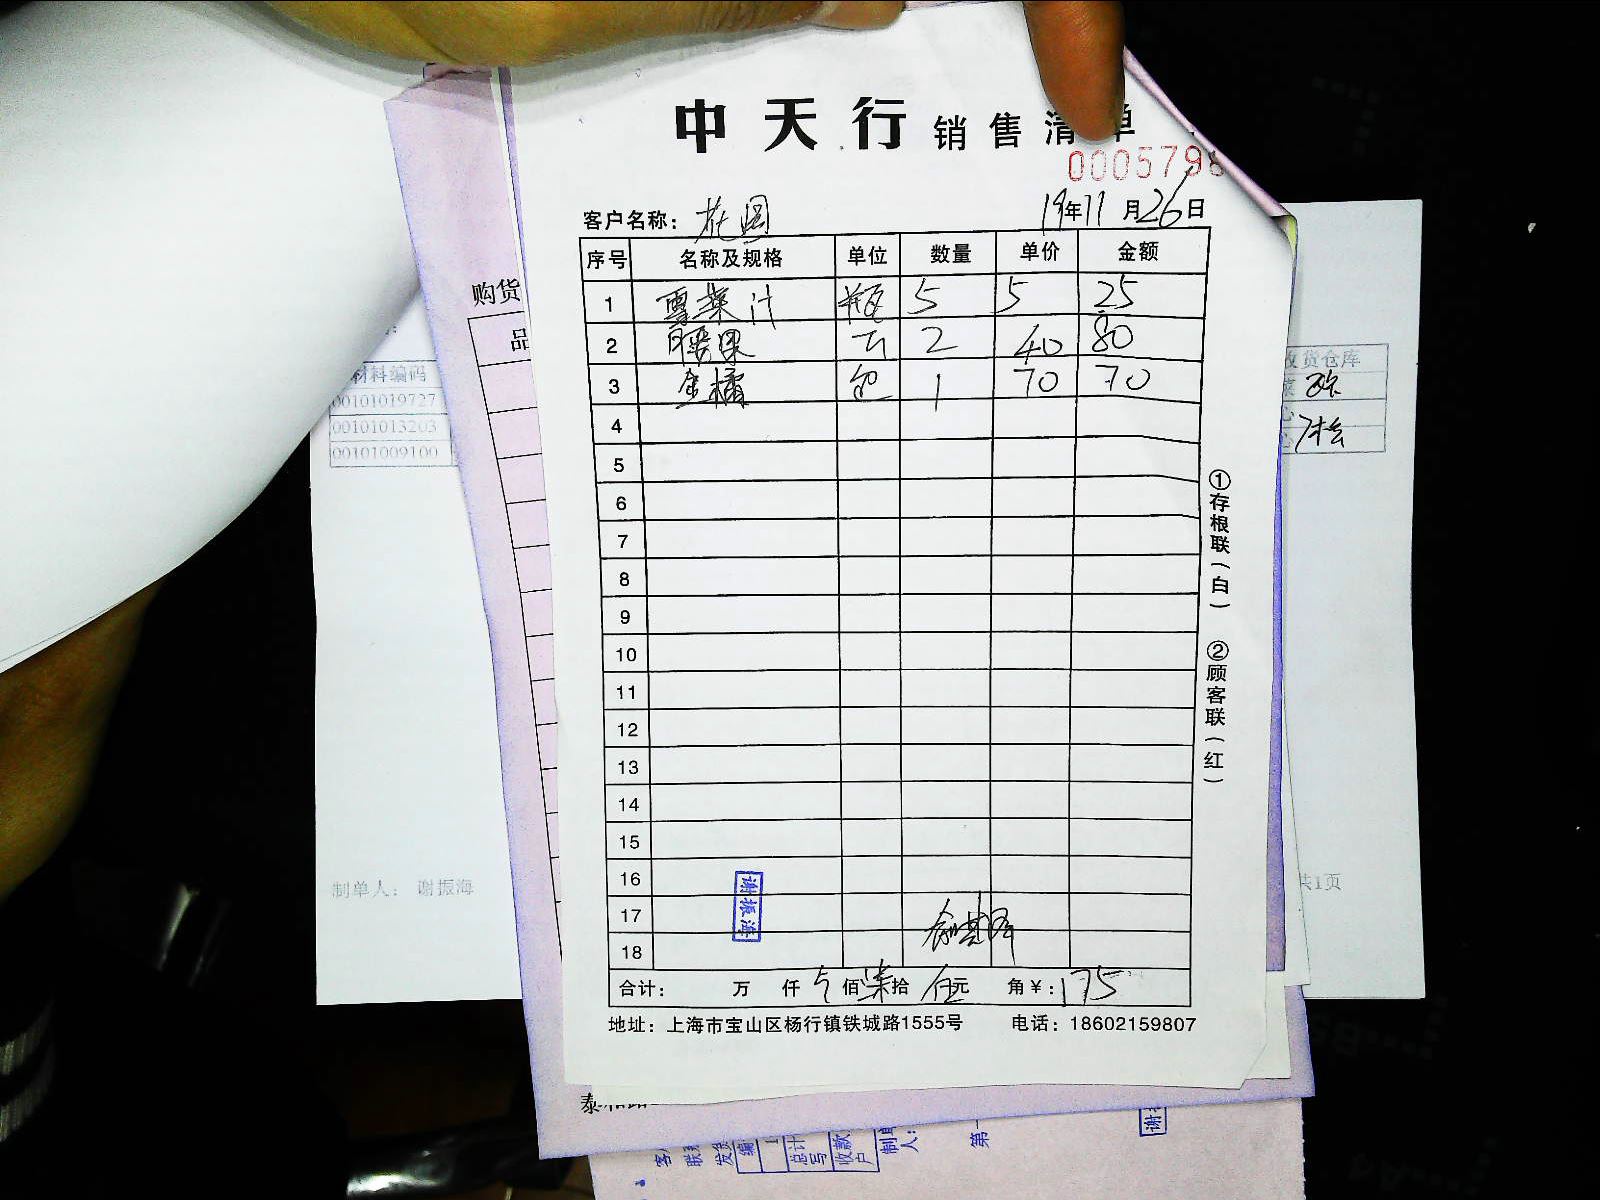 中天行 销售清单
0005798
客户名称: 花园 19年11月26日
序号 名称及规格 单位 数量 单价 金额
1 雪菜汁 瓶 5 5 25
2 腰果 斤 2 40 80
3 金橘 包 1 70 70
4
5
6
7
8
9
10
11
12
13
14
15
16
17
18
谢振海
合计: 万 仟 佰 柒拾 伍元 角 ¥:175
地址:上海市宝山区杨行镇铁城路1555号 电话:18602159807
①存根联(白)
②顾客联(红)
购货
品
材料编码
00101019727
00101013203
00101009100
收货仓库
制单人: 谢振海
共1页
泰
编
总计
收款
户
制单
人:
第